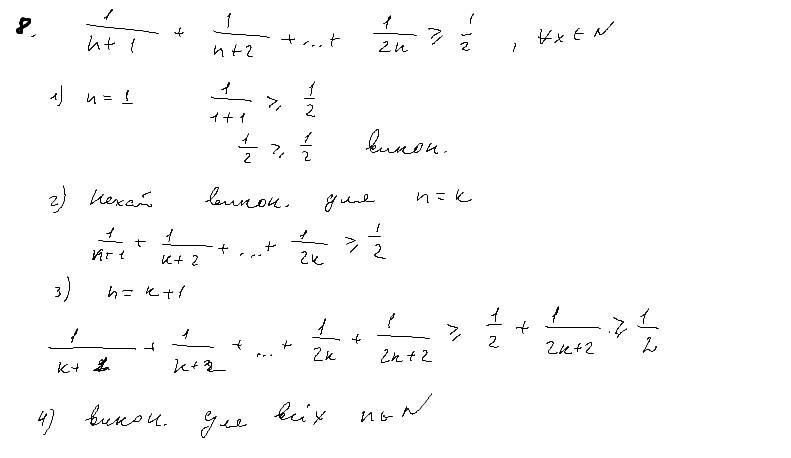 8. 1/(n+1) + 1/(n+2) + ... + 1/(2n) ≥ 1/2 , ∀x ∈ N
1) n = 1 1/(1+1) ≥ 1/2
1/2 ≥ 1/2 викон.
2) Нехай викон. для n = k
1/(k+1) + 1/(k+2) + ... + 1/(2k) ≥ 1/2
3) n = k+1
1/(k+2) + 1/(k+2) + ... + 1/(2k) + 1/(2k+2) ≥ 1/2 + 1/(2k+2) ≥ 1/2
4) викон. для всіх n ∈ N